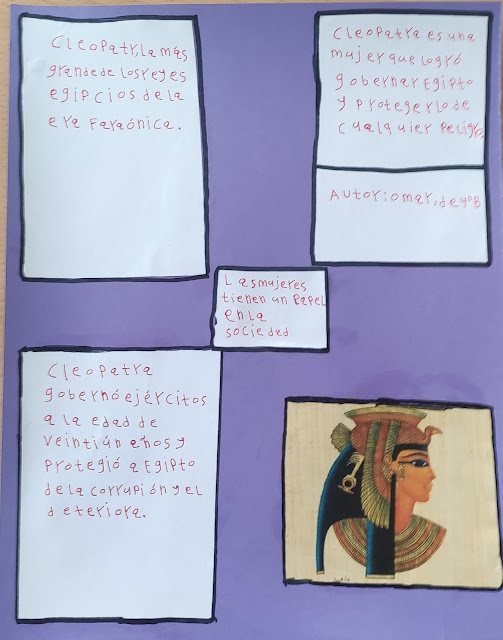 Cleopatr, la más
grande de los reyes
egipcios de la
era Faraónica.
Cleopatra es una
mujer que logró
gobernar Egipto
y protegerlo de
cualquier peligro.
Autor: omar, de 4º B
Las mujeres
tienen un papel
en la
sociedad
Cleopatra
gobernó ejércitos
a la edad de
veintiún años y
protegió a Egipto
de la corrupión y el
deteriora.